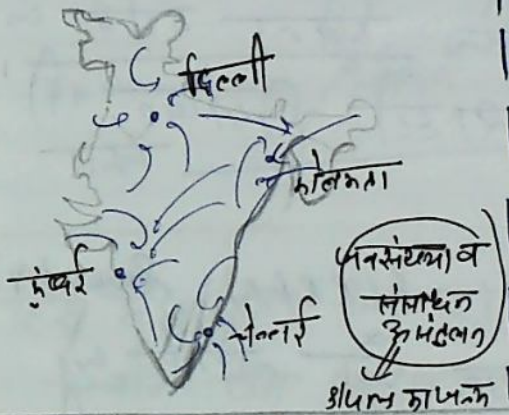 दिल्ली
कोलकता
मुंबई
चेन्नई
जनसंख्या व
संसाधन
असंतुलन